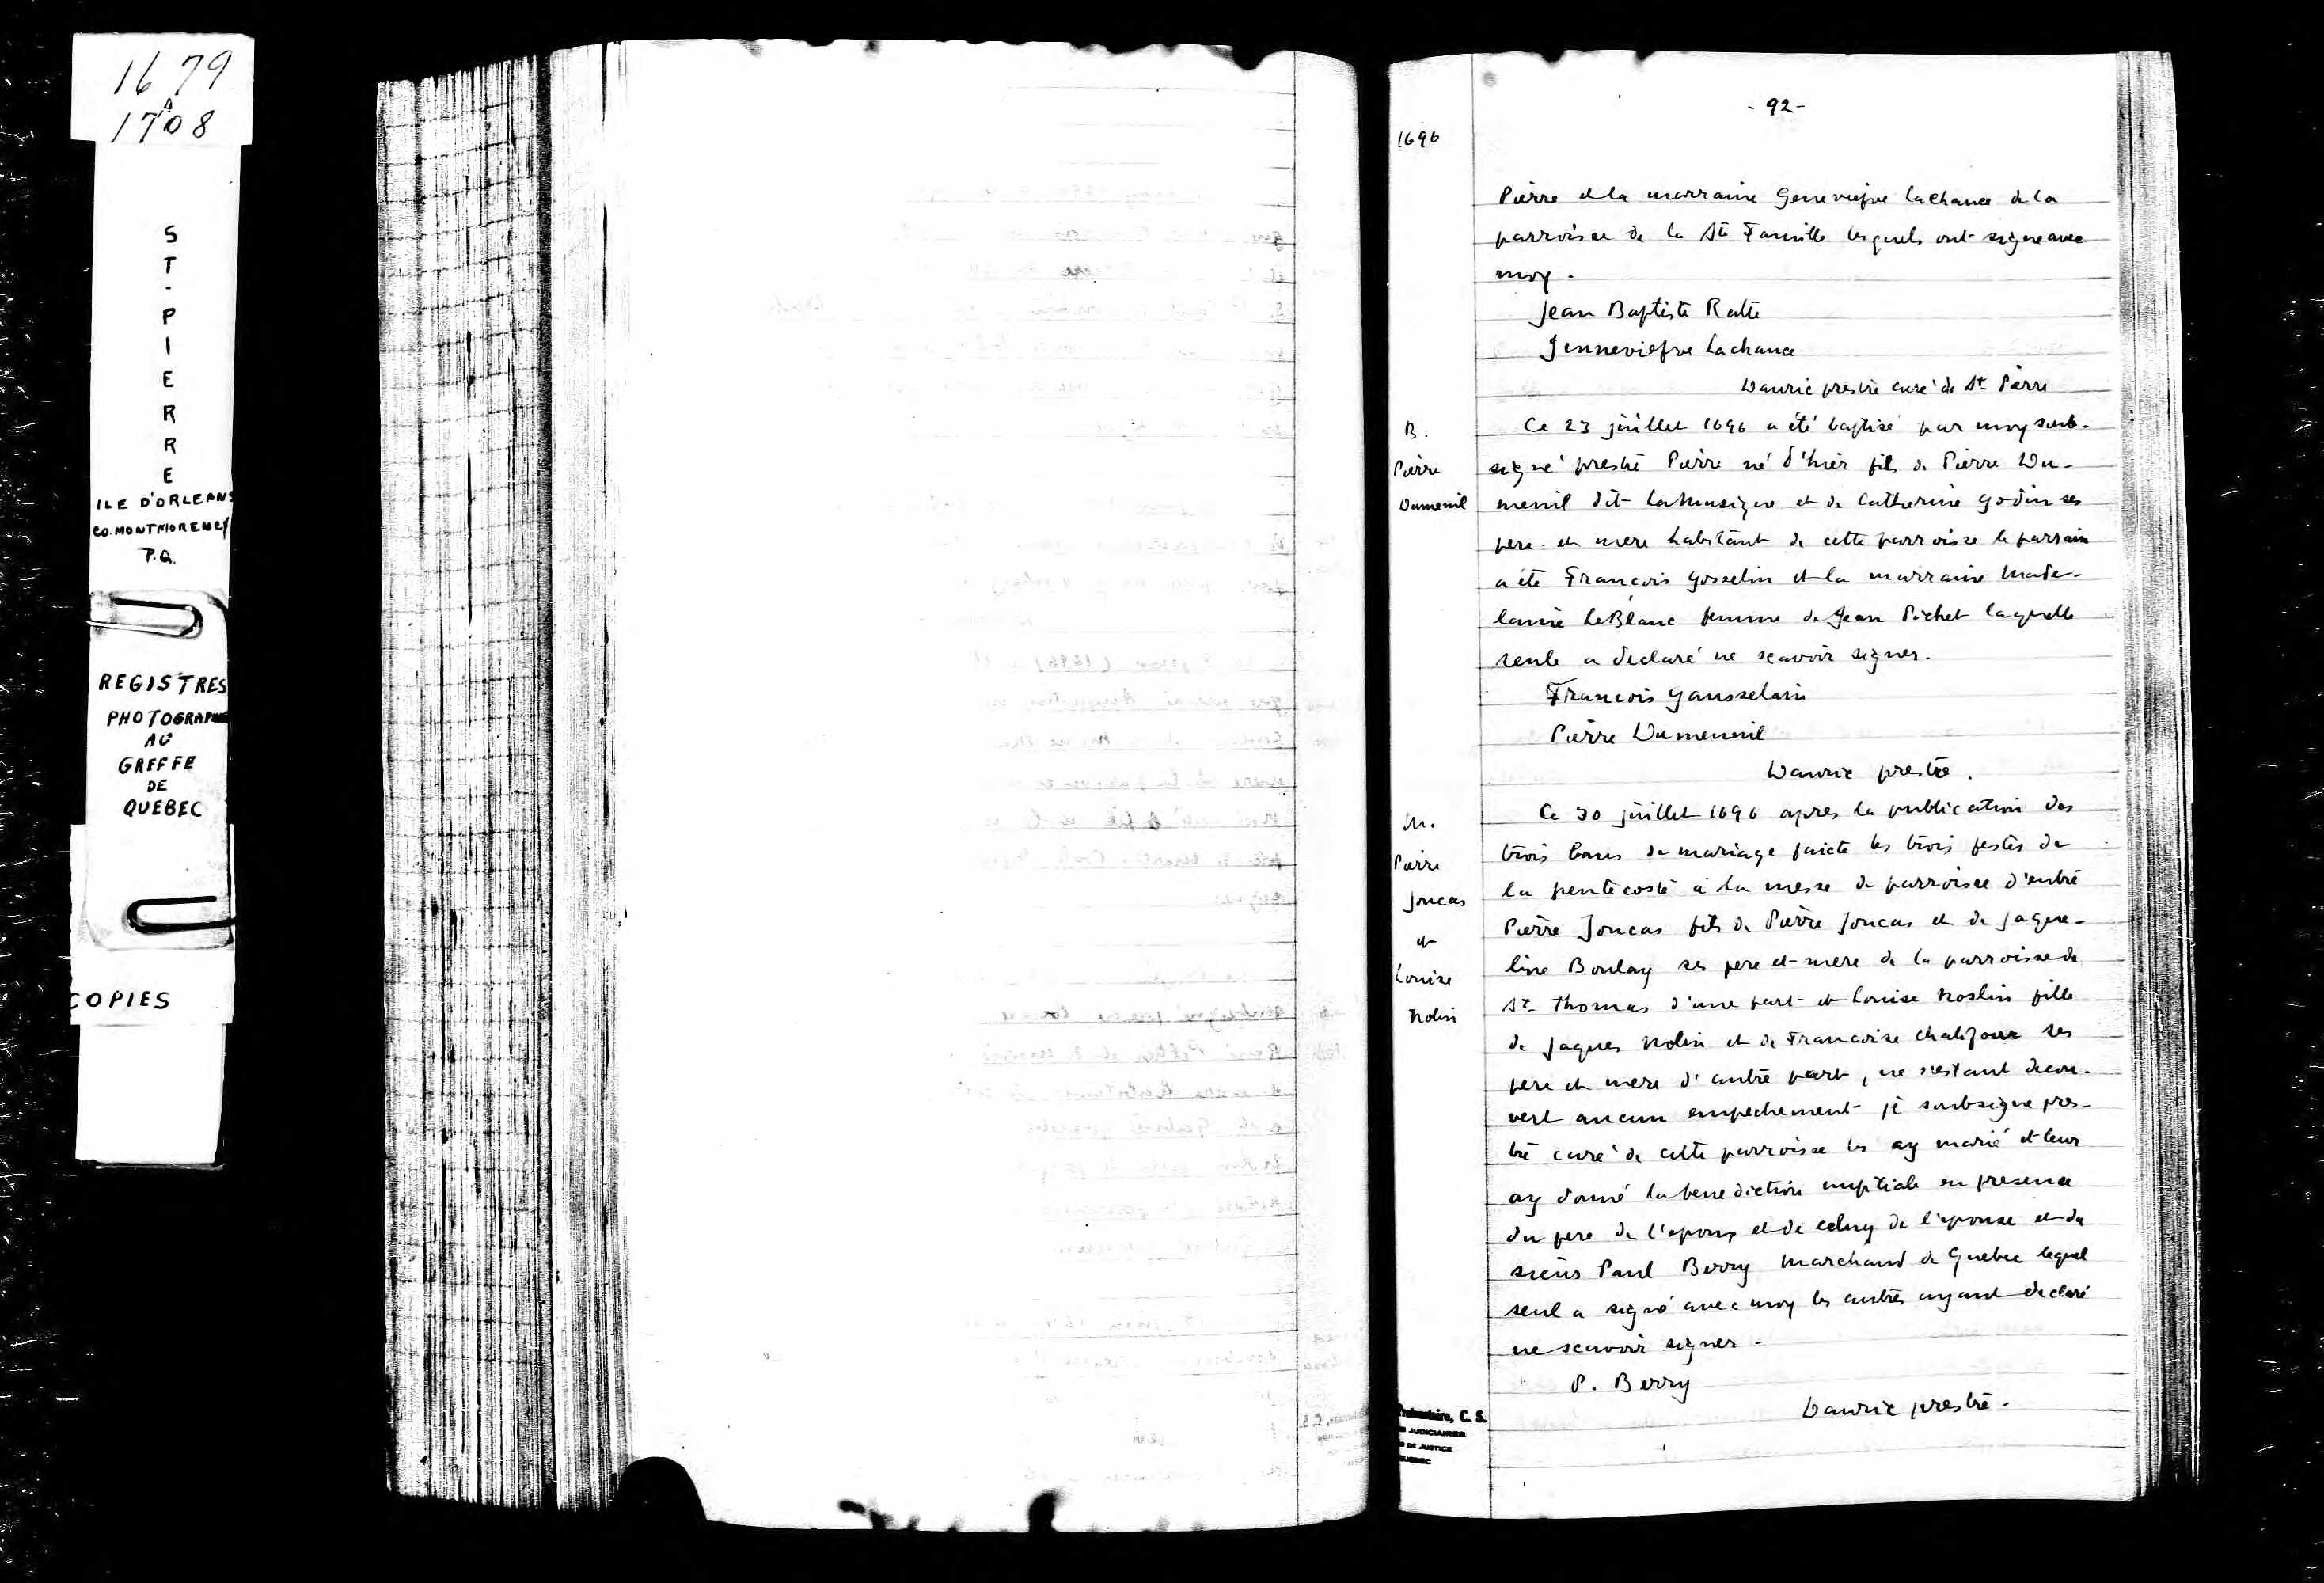 1679
A
1708
ST-PIERRE
ILE D'ORLEANS
CO. MONTMORENCY
P.Q.
REGISTRES
PHOTOGRAPHIE
AU
GREFFE
DE
QUEBEC
COPIES
- 92 -
1696
Pierre et la marraine Geneviefve Lachance de la
parroisse de la Ste Famille lesquels ont signe avec
moy.
Jean Baptiste Ratte
Jenneviefve Lachance
Dauric prestre curé de St Pierre
B.
Pierre
Dumenil
Ce 23 juillet 1696 a été baptisé par moy soub-
signé prestre Pierre né d'hier fils de Pierre Du-
menil dit LaMusique et de Catherine Godin ses
pere et mere habitant de cette parroisse le parrain
a ete Francois Gosselin et la marraine Made-
laine LeBlanc femme de Jean Pichet laquelle
seule a declaré ne scavoir signer.
Francois Gausselain
Pierre Dumenenil
Dauric prestre.
M.
Pierre
Joncas
et
Louise
Nolin
Ce 30 juillet 1696 apres la publication des
trois bans de mariage faicte les trois festes de
la pentecoste à la messe de parroisse d'entre
Pierre Joncas fils de Pierre Joncas et de Jaque-
line Boulay ses pere et mere de la parroisse de
St Thomas d'une part et Louise Noslin fille
de Jaques Nolin et de Francoise Chalifour ses
pere et mere d'autre part, ne s'estant decou-
vert aucun empechement je soubsigne pres-
tre curé de cette parroisse les ay marié et leur
ay donné la benediction nuptiale en presence
du pere de l'epoux et de celuy de l'epouse et du
sieur Paul Berry Marchand de Quebec lequel
seul a signé avec moy les autres ayant declaré
ne scavoir signer -
P. Berry
Dauric prestre.
C. S.
JUDICIAIRES
DE JUSTICE